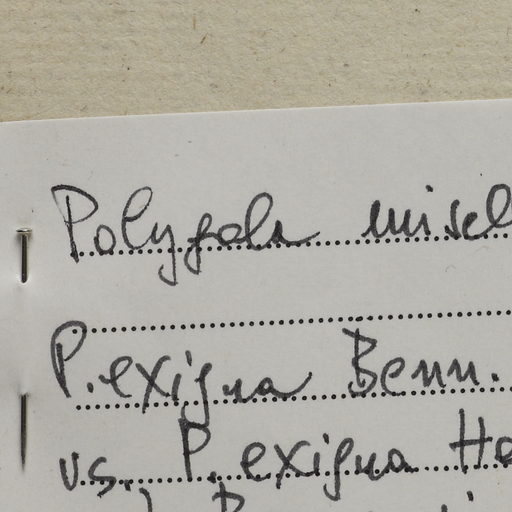 Polygala misel
P. exigua Benn.
vs. P. exigua Ho